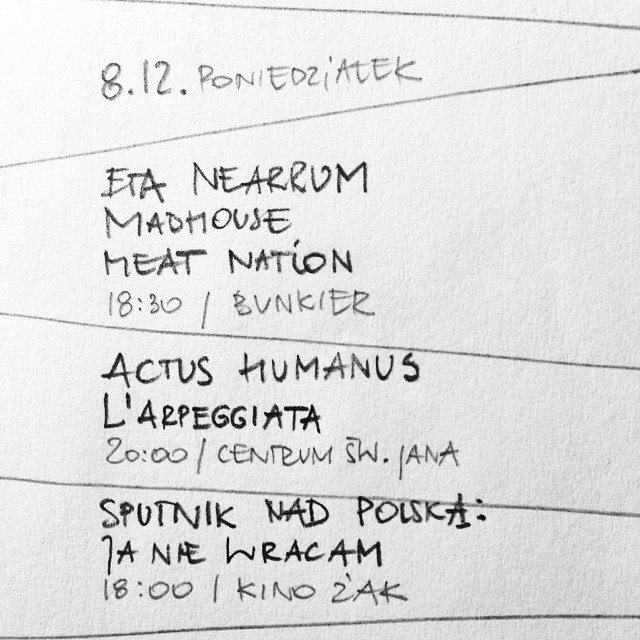 8.12. PONIEDZIAŁEK
ETA NEARRUM
MADHOUSE
MEAT NATION
18:30 / BUNKIER
ACTUS HUMANUS
L'ARPEGGIATA
20:00 / CENTRUM ŚW. JANA
SPUTNIK NAD POLSKĄ:
JA NIE WRACAM
18:00 / KINO ŻAK